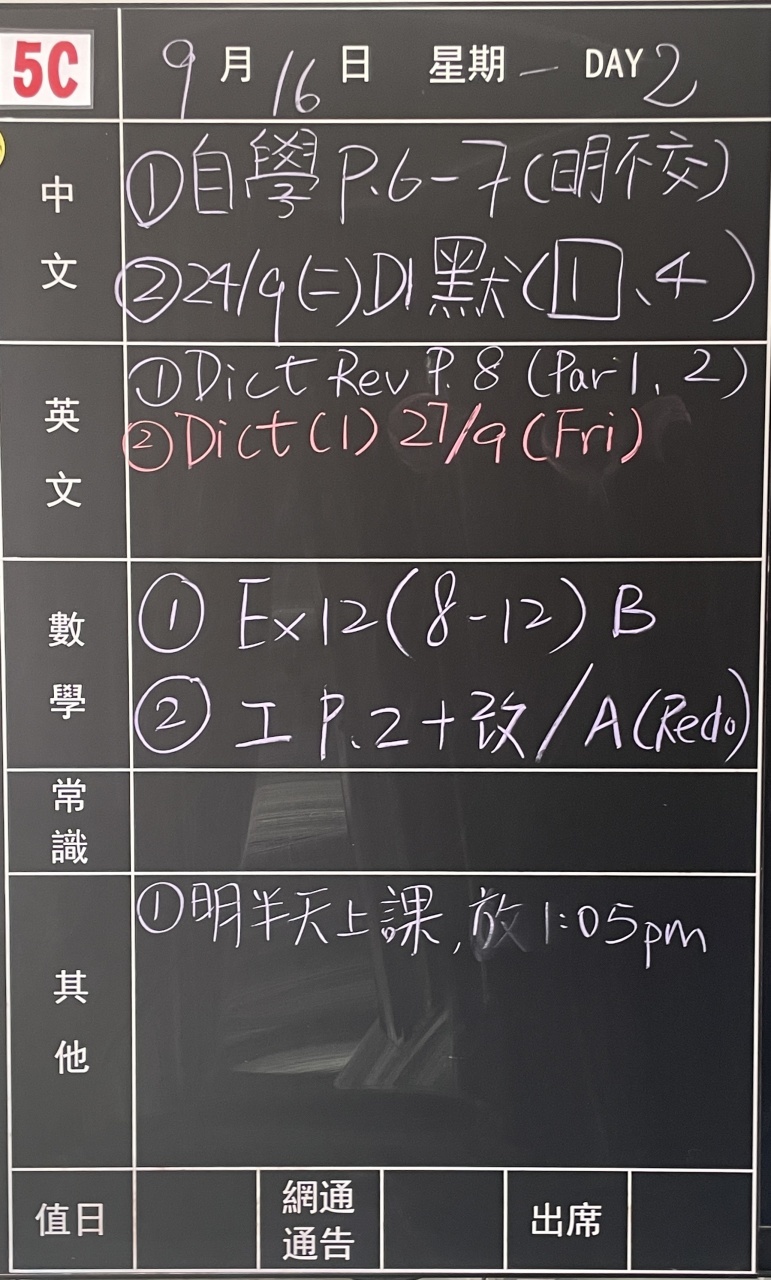 5C 9月16日 星期一 DAY 2
中文
①自學 P.6-7(明不交)
②24/9(二)D1默(1、4)
英文
①Dict Rev P.8 (Par 1、2)
②Dict(1) 27/9 (Fri)
數學
① Ex12(8-12) B
② 工 P.2+改/A(Redo)
常識
其他
①明半天上課,放1:05pm
值日
網通通告
出席